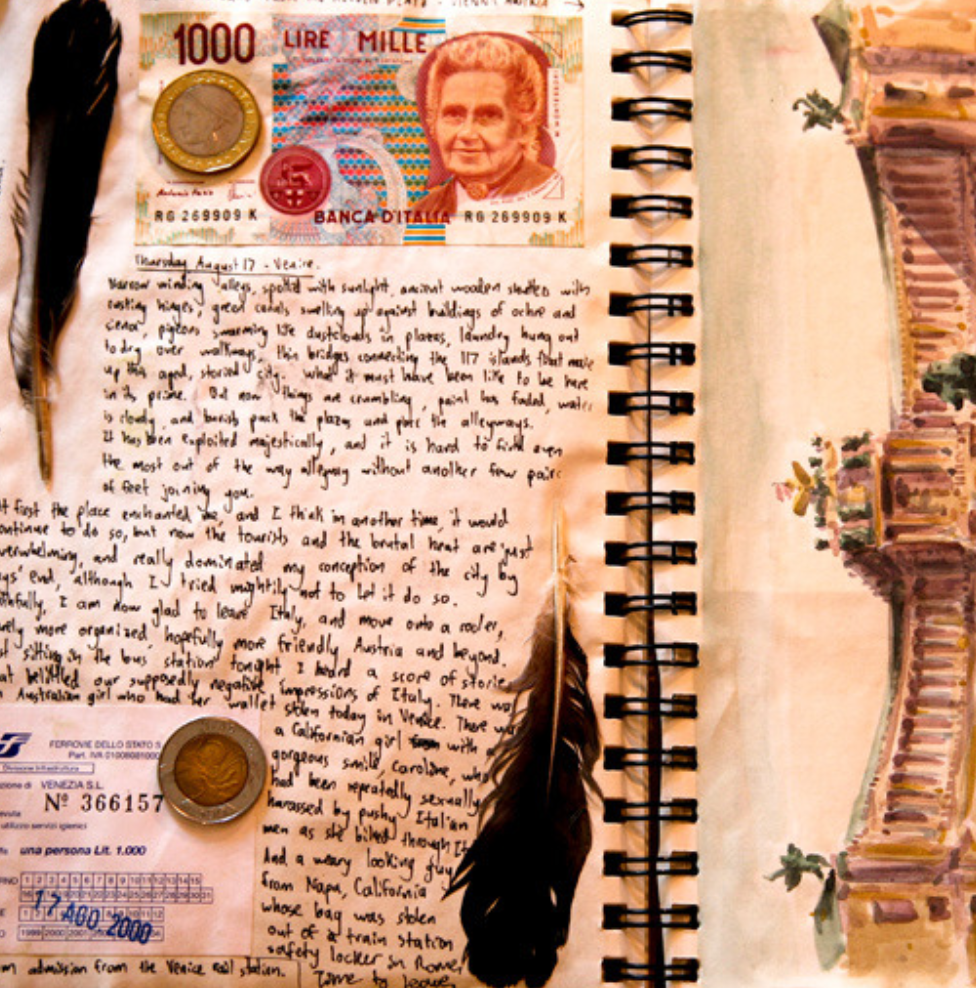 1000 LIRE MILLE
RG 269909 K BANCA D'ITALIA RG 269909 K
Thursday August 17 - Venice.
Narrow winding alleys, spotted with sunlight, ancient wooden shutters with
rusting hinges, green canals swelling up against buildings of ochre and
pigeons swarming like dustclouds in plazas, laundry hung out
to dry over walkways, thin bridges connecting the 117 islands that make
up this aged, storied city. What it must have been like to be here
in its prime. But now things are crumbling, paint has faded, water
is cloudy, and tourists pack the plazas and the alleyways.
It has been exploited majestically, and it is hard to find even
the most out of the way alleyway without another few pairs
of feet joining you.
At first the place enchanted me, and I think in another time, it would
continue to do so, but now the tourists and the brutal heat are just
overwhelming, and really dominated my conception of the city by
days' end, although I tried mightily not to let it do so.
I am now glad to leave Italy, and move onto a cooler,
more organized, hopefully more friendly Austria and beyond.
sitting in the bus station tonight I heard a score of stories
that belittled our supposedly negative impressions of Italy. There was
Australian girl who had her wallet stolen today in Venice. There was
a Californian girl with a
gorgeous smile, Caroline, who
had been repeatedly sexually
harassed by pushy Italian
men as she biked through It
And a weary looking guy
from Napa, California
whose bag was stolen
out of a train station
safety locker in Rome.
Time to leave
FERROVIE DELLO STATO S
Part. IVA 01008081000
Divisione Infrastruttura
zione di VENEZIA S.L.
Nº 366157
utilizzo servizi igienici
una persona Lit. 1.000
RNO 1 2 3 4 5 6 7 8 9 10 11 12 13 14 15
17 AGO 2000
admission from the Venice rail station.